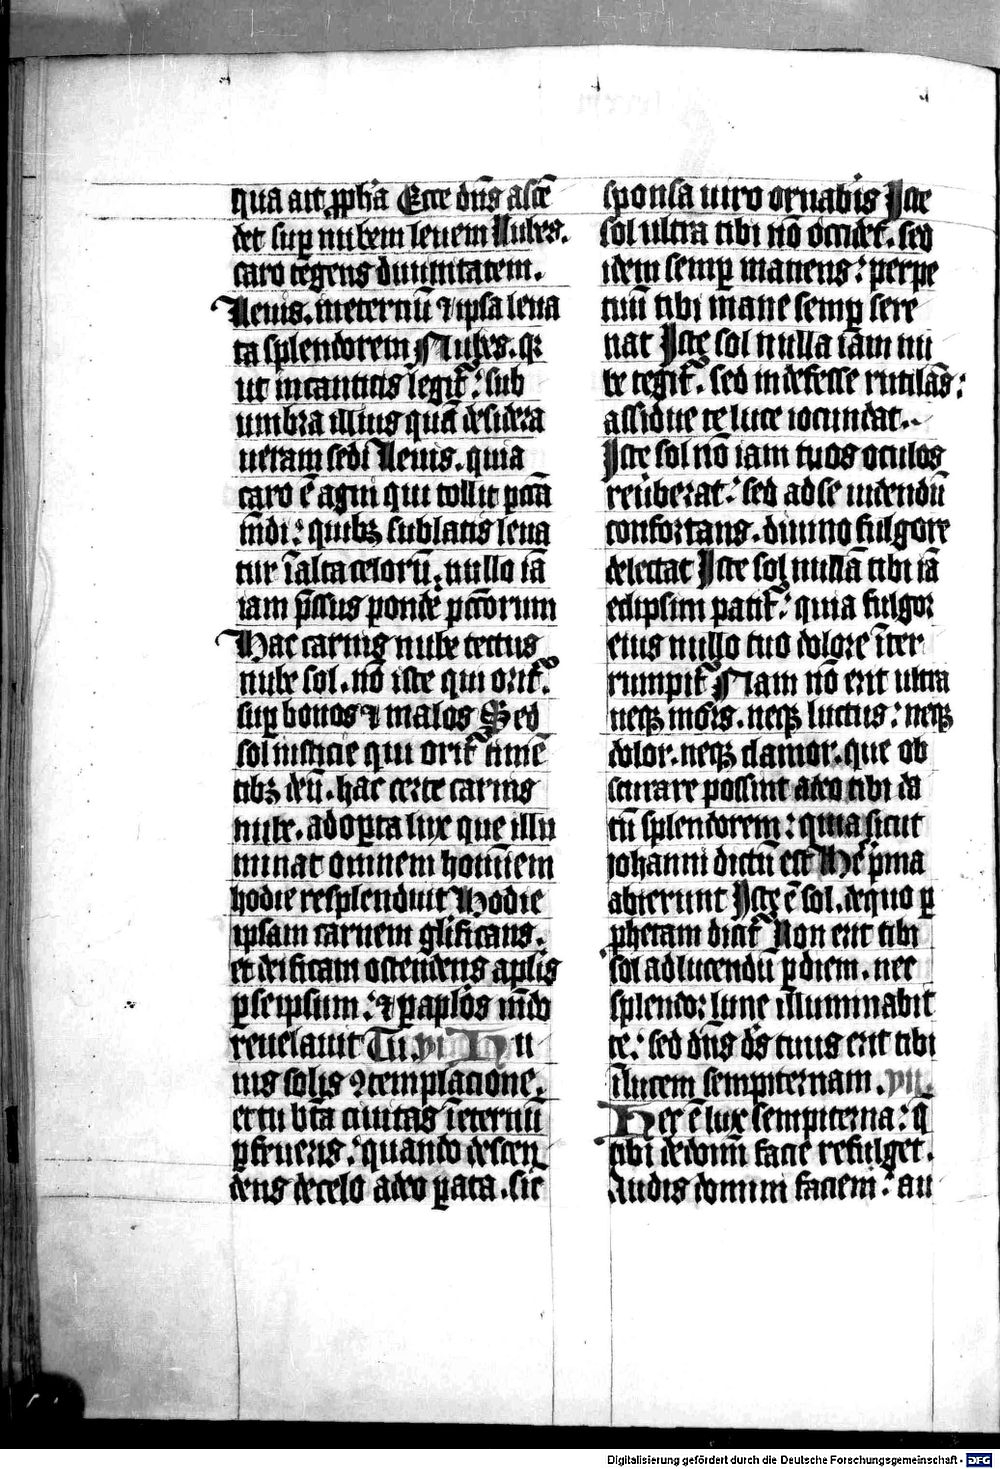 qua ait ꝓph̄a Ecce dn̄s ascē
det suꝑ nubem leuem Nubes.
caro tegens diuinitatem.
Leuis. in eternū ⁊ ipsa leua
ta splendorem Nubes. qꝛ
ut in canticis legit᷑: sub
umbra illius quā desidera
ueram sedi Leuis. quia
caro ē agni qui tollit pcc̄a
mūdi: quibꝫ sublatis leua
tur ī alta celorū. nullo iā
iam p̄ssus ponde᷑ pcc̄orum
Hac carnis nube tectus
nube sol. nō iste qui orit᷑:
suꝑ bonos ⁊ malos Sed
sol iusticie qui orit᷑ timē
tibꝫ deū. hac certe carnis
nube. adoꝑta lux que illu
minat omnem hominem
hodie resplenduit Hodie
ipsam carnem gl̄ificans.
et deificam ostendens apl̄is
ꝑ seipsum: ⁊ ꝑ apl̄os mūdo
reuelauit Tu. vi Hu
ius solis ꝯtemplacione.
et tu bt̄a ciuitas ī eternū
ꝑfrueris: quando descen
dens de celo a deo ꝑata. sic
sponsa uiro ornabis᷑ Iste
sol ultra tibi nō occidet. sed
idem semꝑ manens: perpe
tuū tibi mane semꝑ sere
nat Iste sol nulla iam nu
be tegit᷑. sed indefesse rutilās:
assidue te luce iocundat.
Iste sol nō iam tuos oculos
reūberat: sed ad se uidendū
confortans. diuino fulgore
delectat Iste sol nullā tibi iā
eclipsim patit᷑: quia fulgor
eius nullo tuo dolore īter
rumpit᷑ Nam nō erit ultra
neqꝫ mors. neqꝫ luctus: neqꝫ
dolor. neqꝫ clamor. que ob
scurare possint a deo tibi da
tū splendorem: quia sicut
iohanni dictū est He᷑ p̄ma
abierunt Iste ē sol. de quo ꝓ
phetam dicit᷑ Non erit tibi
sol ad lucendū ꝑ diem. nec
splendor lune illuminabit
te: sed dn̄s ds̄ tuus erit tibi
ī lucem sempiternam. vii.
Hec ē lux sempiterna: q̄
tibi de domī facie refulget.
Audis domini faciem: au
Digitalisierung gefördert durch die Deutsche Forschungsgemeinschaft - DFG